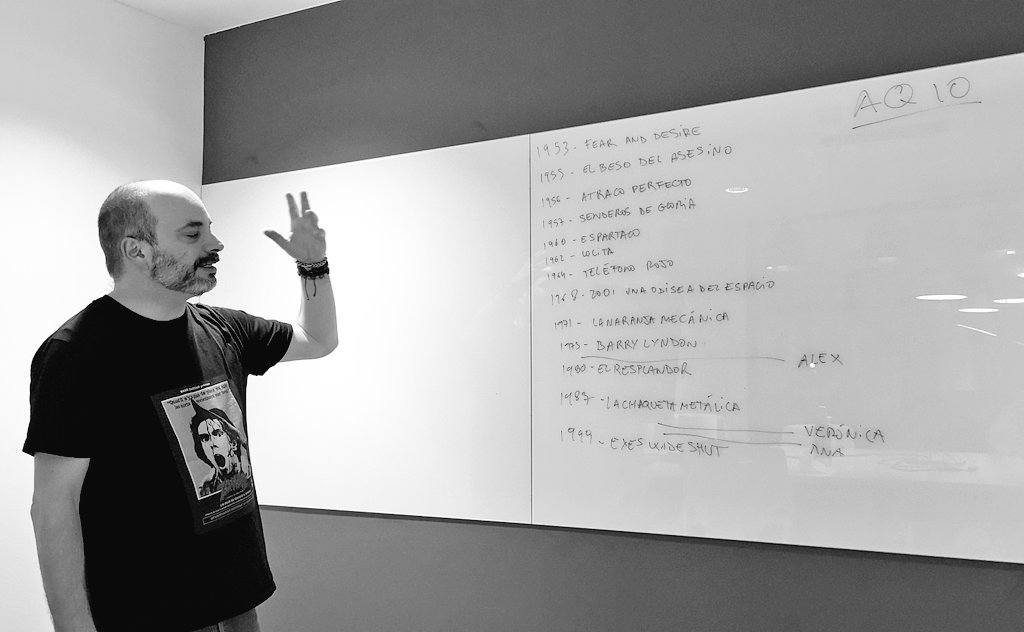 AQ 10
1953 - FEAR AND DESIRE
1955 - EL BESO DEL ASESINO
1956 - ATRACO PERFECTO
1957 - SENDEROS DE GLORIA
1960 - ESPARTACO
1962 - LOLITA
1964 - TELÉFONO ROJO
1968 - 2001 UNA ODISEA DEL ESPACIO
1971 - LA NARANJA MECÁNICA
1975 - BARRY LYNDON
ALEX
1980 - EL RESPLANDOR
1987 - LA CHAQUETA METÁLICA
VERÓNICA
1999 - EYES WIDE SHUT
ANA